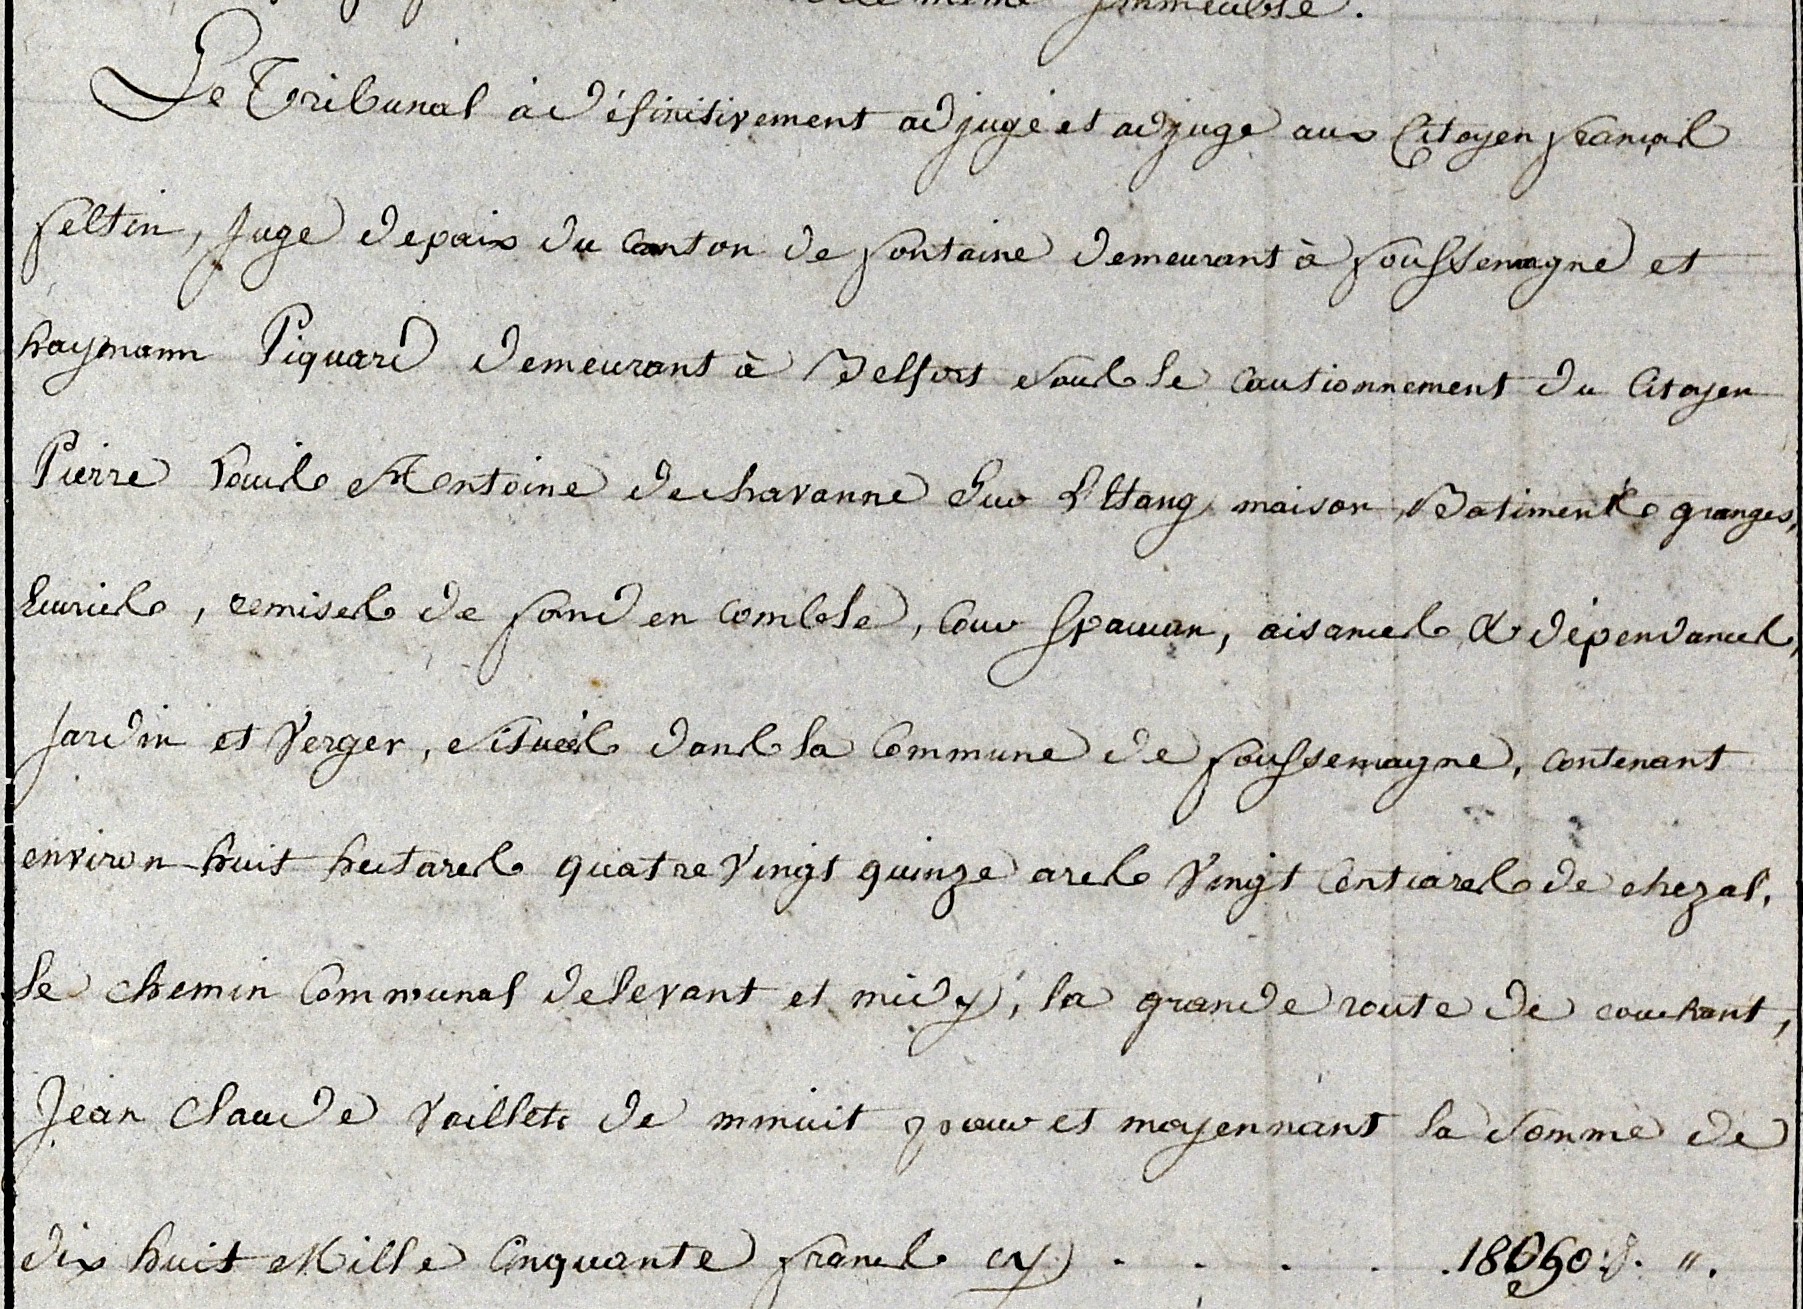 même Immeuble.
Le Tribunal à définitivement adjugé et adjuge aux Citoyen françois
feltin, Juge depaix du canton de fontaine demeurant à foussemagne et
haymann Piquard demeurant à Belfort sous le cautionnement du Citoyen
Pierre Louis Antoine de chavanne sur L'Etang, maison, Batiments granges,
Ecuries, remises de fond en comble, Cour aisances & dépendances,
Jardin et Verger, situés dans la Commune de foussemagne, contenant
environ huit hectares quatre Vingt quinze ares Vingt Centiares de chezal,
le chemin Communal delevant et midy, la grande route de couchant,
Jean Claude Vaillet de minuit pour et moyennant la somme de
dix huit Mille Cinquante francs cy . . . . . 18050 f. ".